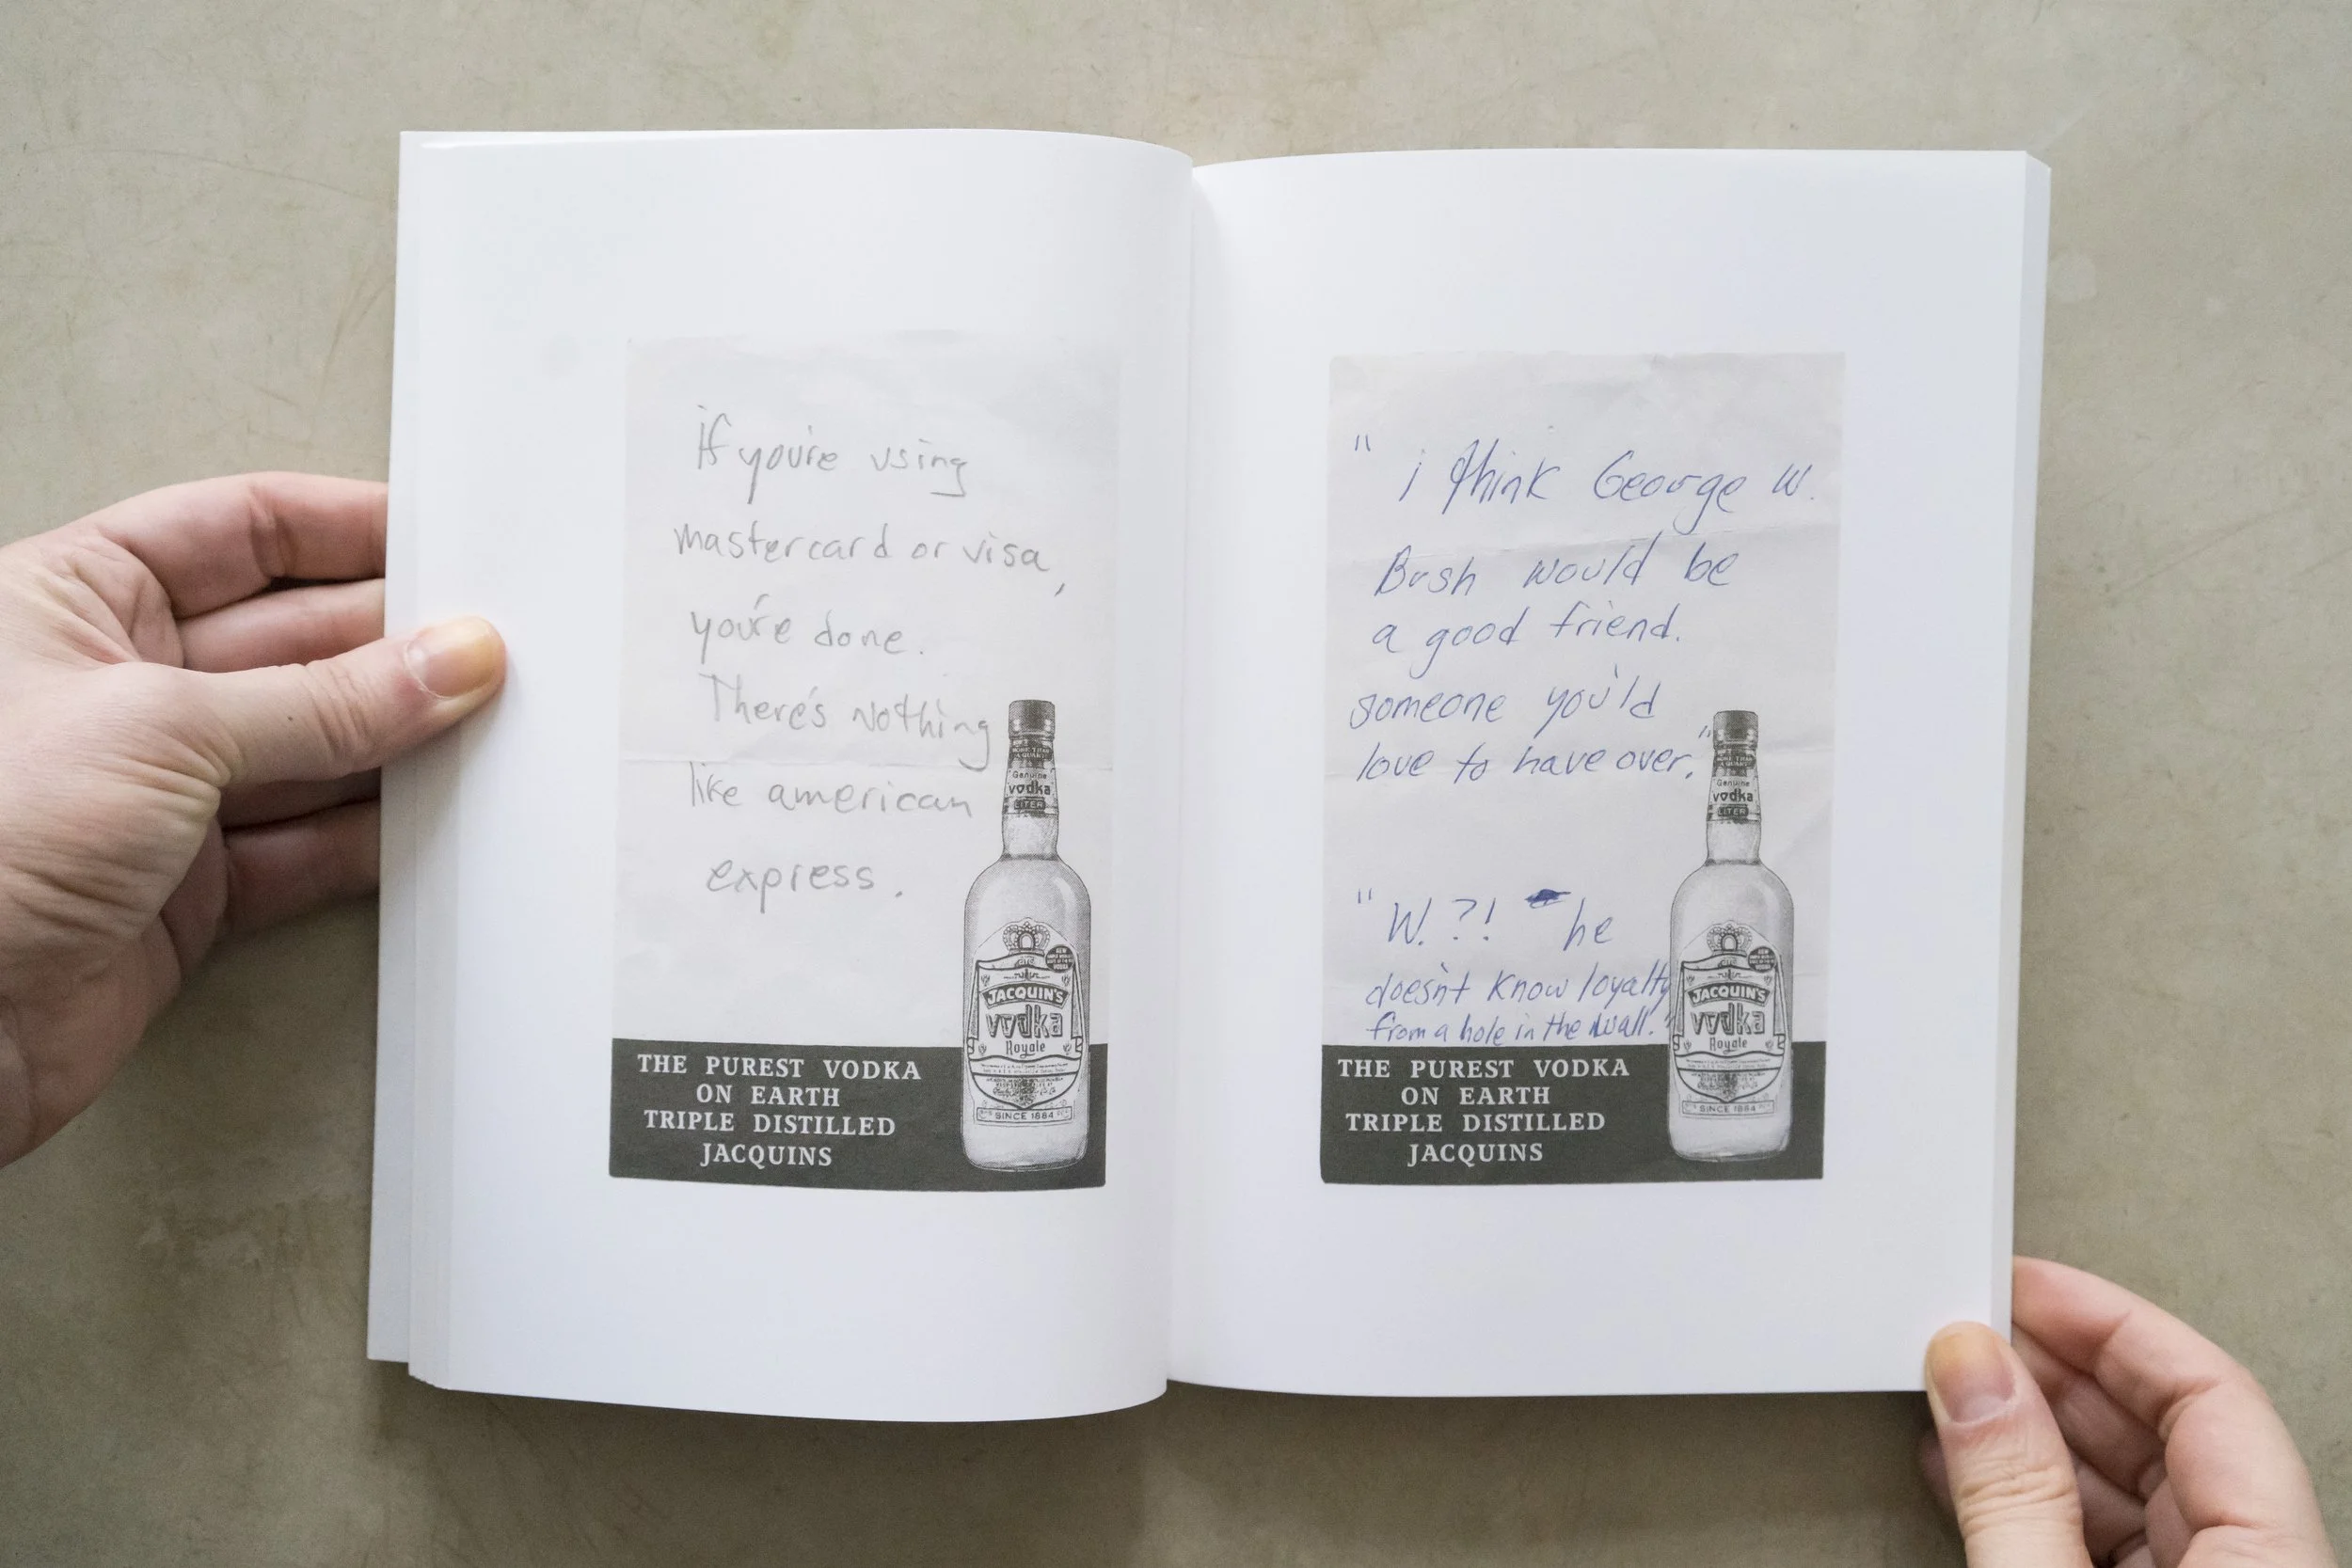 if you're using
mastercard or visa,
you're done.
There's nothing
like american
express.
MORE THAN
A QUART
Genuine
vodka
LITER
JACQUIN'S
vodka
Royale
SINCE 1884
THE PUREST VODKA
ON EARTH
TRIPLE DISTILLED
JACQUINS
" i think George W.
Bush would be
a good friend.
someone you'ld
love to have over."
"W.?! he
doesn't know loyalty
from a hole in the wall."
MORE THAN
A QUART
Genuine
vodka
LITER
JACQUIN'S
vodka
Royale
SINCE 1884
THE PUREST VODKA
ON EARTH
TRIPLE DISTILLED
JACQUINS